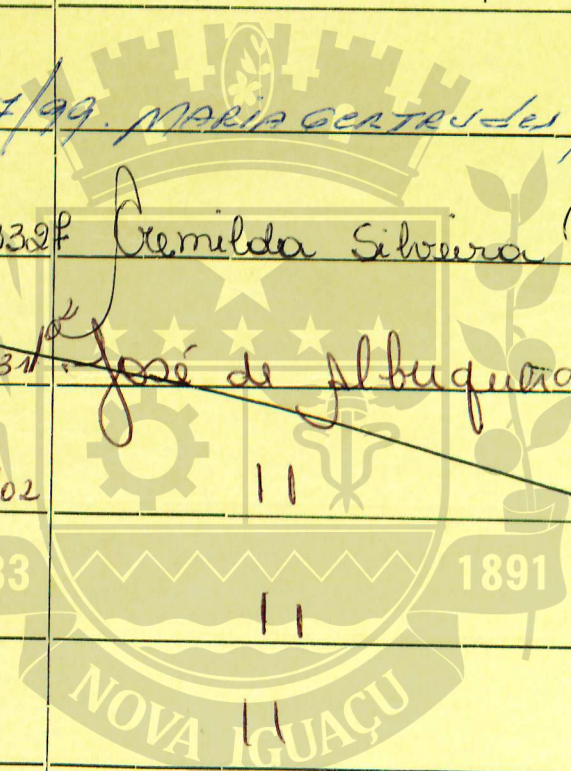 7/99. MARIA GERTRUdes
332f Cremilda Silveira
31/ José de Albuquerq
/02 11
33 1891
11
NOVA IGUAÇU
11